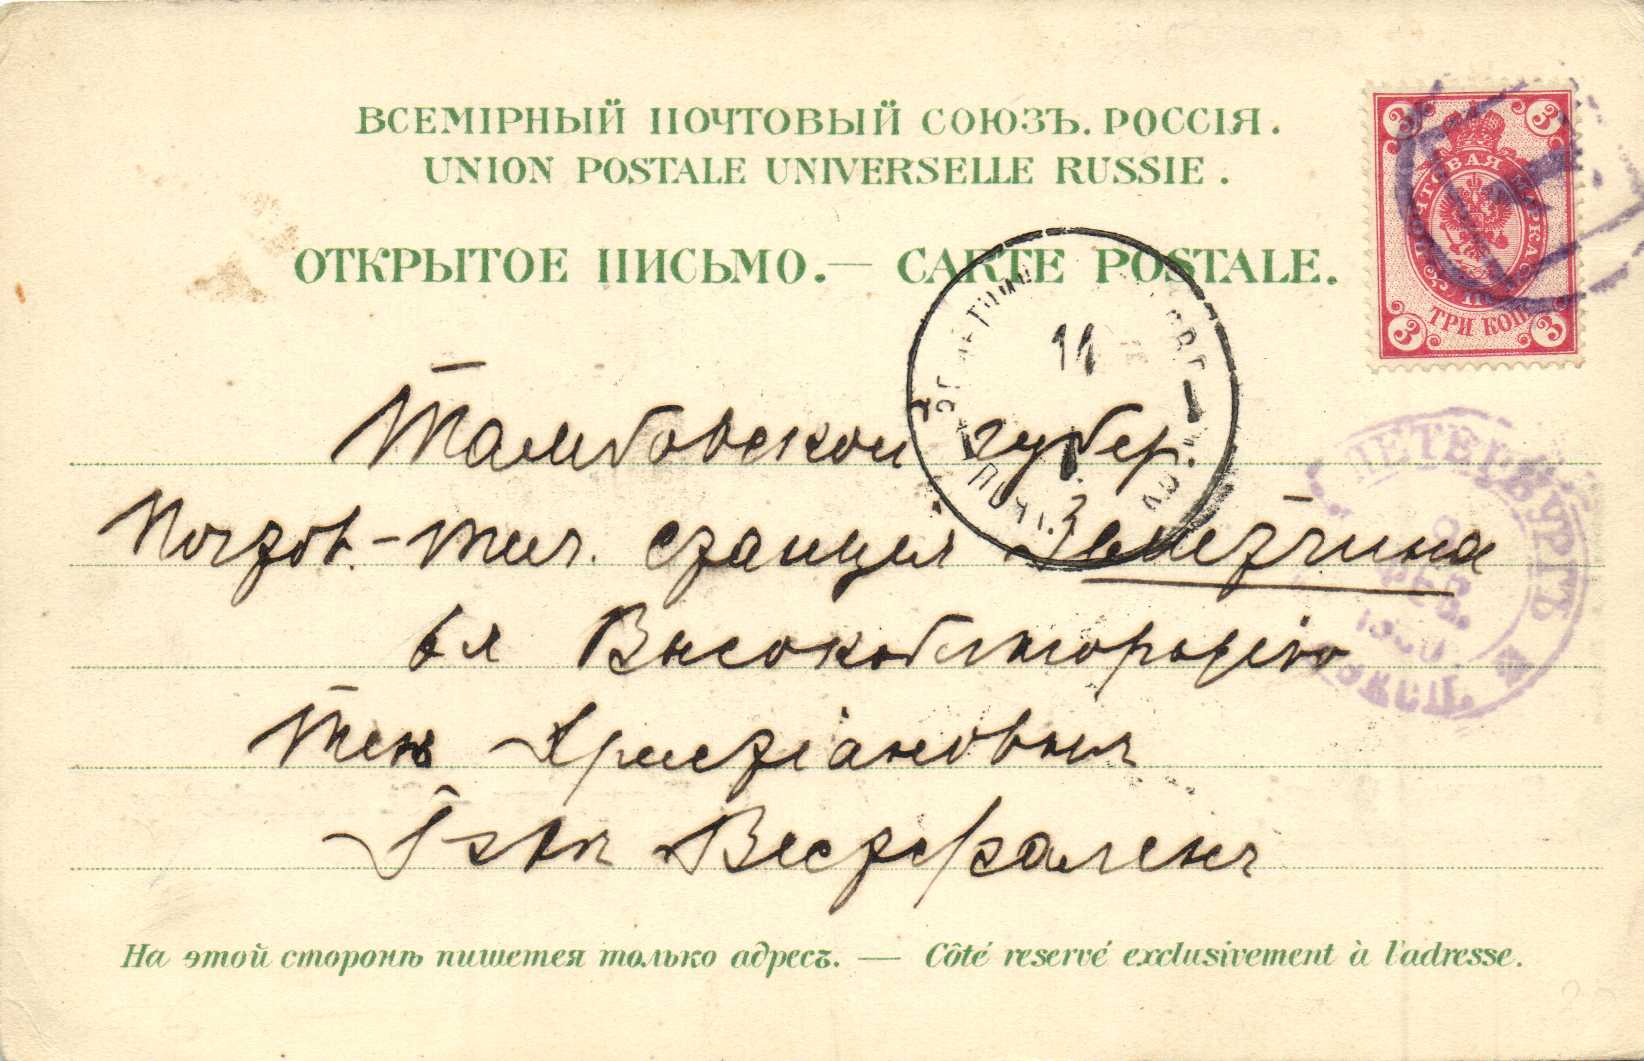 ВСЕМІРНЫЙ ПОЧТОВЫЙ СОЮЗЪ. РОССІЯ.
UNION POSTALE UNIVERSELLE RUSSIE.
ОТКРЫТОЕ ПИСЬМО.— CARTE POSTALE.
ПОЧТОВАЯ МАРКА
ТРИ КОП
3 3 3 3
11
Тамбовской губер.
Почтов.-тел. станция Земетчина
ПЕТЕРБУРГЪ
Ея Высокоблагородію
Христіановнѣ
Вестфаленъ
На этой сторонѣ пишется только адресъ. — Côté reservé exclusivement à l'adresse.